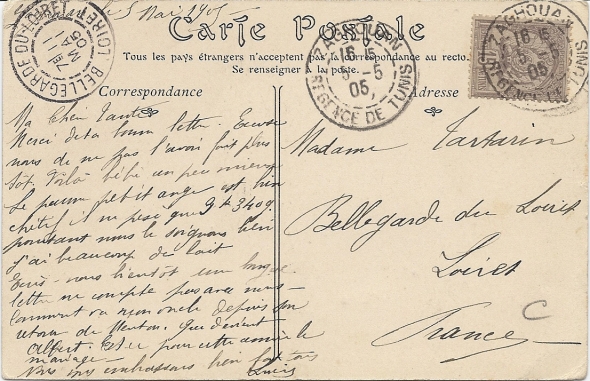 5 Mai 1905
Carte Postale
Tous les pays étrangers n'acceptent pas la correspondance au recto.
Se renseigner à la poste.
BELLEGARDE-DU-LOIRET LOIRET
11 MAI 05
ZAGHOUAN
16 15
5-5
05
RÉGENCE DE TUNIS
ZAGHOUAN
16 15
5-5
05
RÉGENCE DE TUNIS
Correspondance
Adresse
Ma Chère Tante
Merci de ta lettre. Excuse
nous de ne pas l'avoir fait plus
tôt. Voilà bébé un peu mieux
Le pauvre petit ange est bien
chétif il ne pèse que 3k 340g
pourtant nous le soignons bien
j'ai beaucoup de lait
Ecris-nous bientôt une longue
lettre ne compte pas avec nous
comment va mon oncle depuis son
retour de Menton. Que devient
Albert. Est-ce pour cette année le
mariage
Nous vous embrassons bien fort
Madame Tartarin
Bellegarde du Loiret
Loiret
France
C